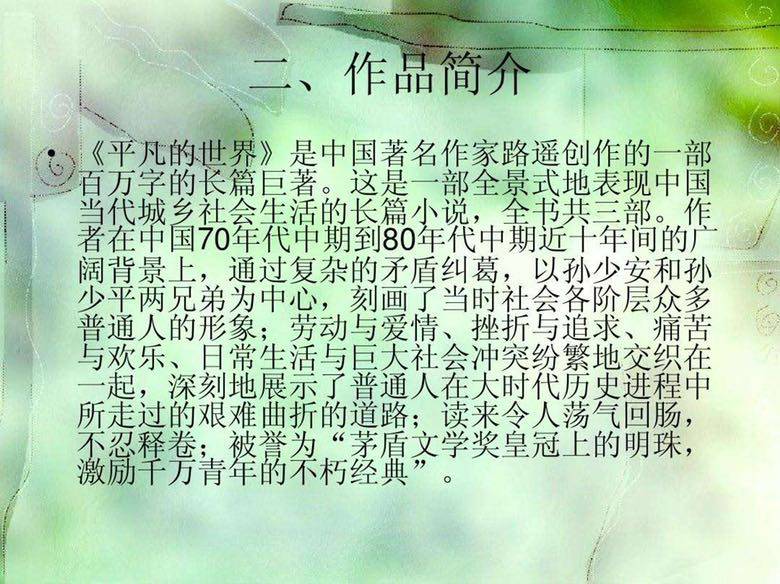 二、作品简介
• 《平凡的世界》是中国著名作家路遥创作的一部
百万字的长篇巨著。这是一部全景式地表现中国
当代城乡社会生活的长篇小说，全书共三部。作
者在中国70年代中期到80年代中期近十年间的广
阔背景上，通过复杂的矛盾纠葛，以孙少安和孙
少平两兄弟为中心，刻画了当时社会各阶层众多
普通人的形象；劳动与爱情、挫折与追求、痛苦
与欢乐、日常生活与巨大社会冲突纷繁地交织在
一起，深刻地展示了普通人在大时代历史进程中
所走过的艰难曲折的道路；读来令人荡气回肠，
不忍释卷；被誉为“茅盾文学奖皇冠上的明珠，
激励千万青年的不朽经典”。